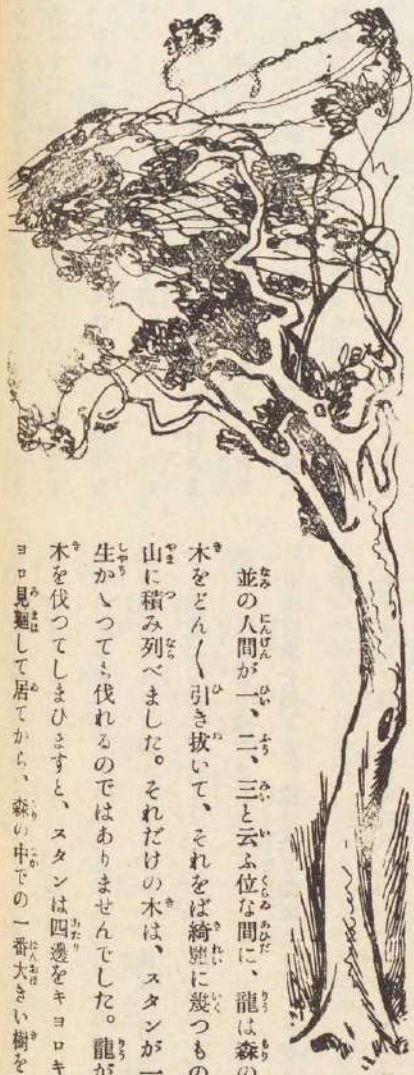 並の人間が一、二、三と云ふ位な間に、龍は森の
木をどん〳〵引き抜いて、それをば綺麗に幾つもの
山に積み列べました。それだけの木は、スタンが一
生かゝつても伐れるのではありませんでした。龍が
木を伐つてしまひますと、スタンは四邊をキヨロキ
ヨロ見𢌞して居てから、森の中での一番大きい樹を